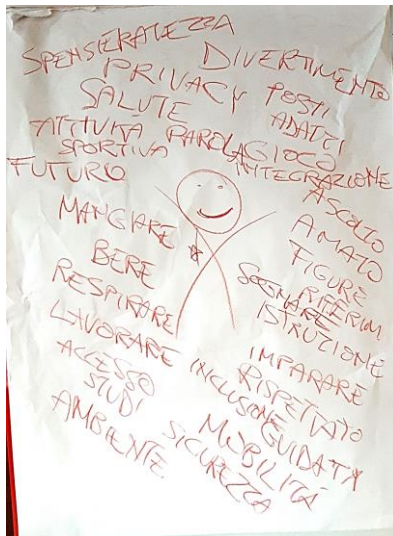 SPENSIERATEZZA
DIVERTIMENTO
PRIVACY
POSTI
ADATTI
SALUTE
ATTIVITÀ
SPORTIVA
PAROLA
GIOCO
INTEGRAZIONE
FUTURO
ASCOLTO
MANGIARE
AMATO
BERE
FIGURE
RIFERIM
RESPIRARE
SOGNARE
ISTRUZIONE
LAVORARE
IMPARARE
ACCESSO
STUDI
INCLUSIONE
RISPETTATO
GUIDATA
AMBIENTE
SICUREZZA
MOBILITÁ